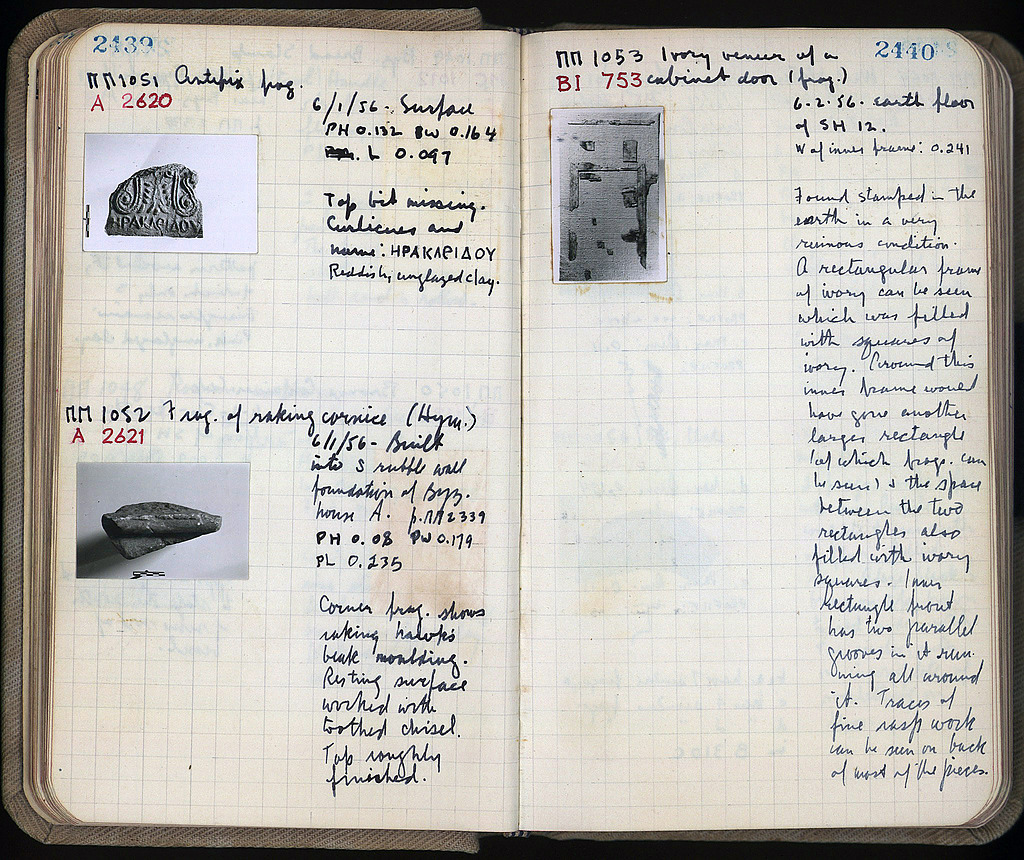 2439
ΠΠ 1051 Antifix frag.
A 2620
6/1/56 - Surface
PH 0.132 BW 0.164
L 0.097
Top bit missing.
Curlicues and
name: ΗΡΑΚΛΕΙΔΟΥ
Reddish, unglazed clay.
ΗΡΑΚΛΕΙΔΟΥ
ΠΠ 1052 Frag. of raking cornice (Hym.)
A 2621
6/1/56 - Built
into S rubble wall
foundation of Byz.
house A. p. ΠΠ 2339
PH 0.08 PW 0.179
PL 0.235
Corner frag. shows
raking hawks
beak moulding.
Resting surface
worked with
toothed chisel.
Top roughly
finished.
2440
ΠΠ 1053 Ivory veneer of a
BI 753 cabinet door (frag.)
6.2.56. earth floor
of SH 12.
W of inner frame: 0.241
Found stamped in the
earth in a very
ruinous condition.
A rectangular frame
of ivory can be seen
which was filled
with squares of
ivory. Around this
inner frame would
have gone another
larger rectangle
(of which frags. can
be seen) & the space
between the two
rectangles also
filled with ivory
squares. Inner
rectangle front
has two parallel
grooves in it run-
ning all around
it. Traces of
fine rasp work
can be seen on back
of most of the pieces.